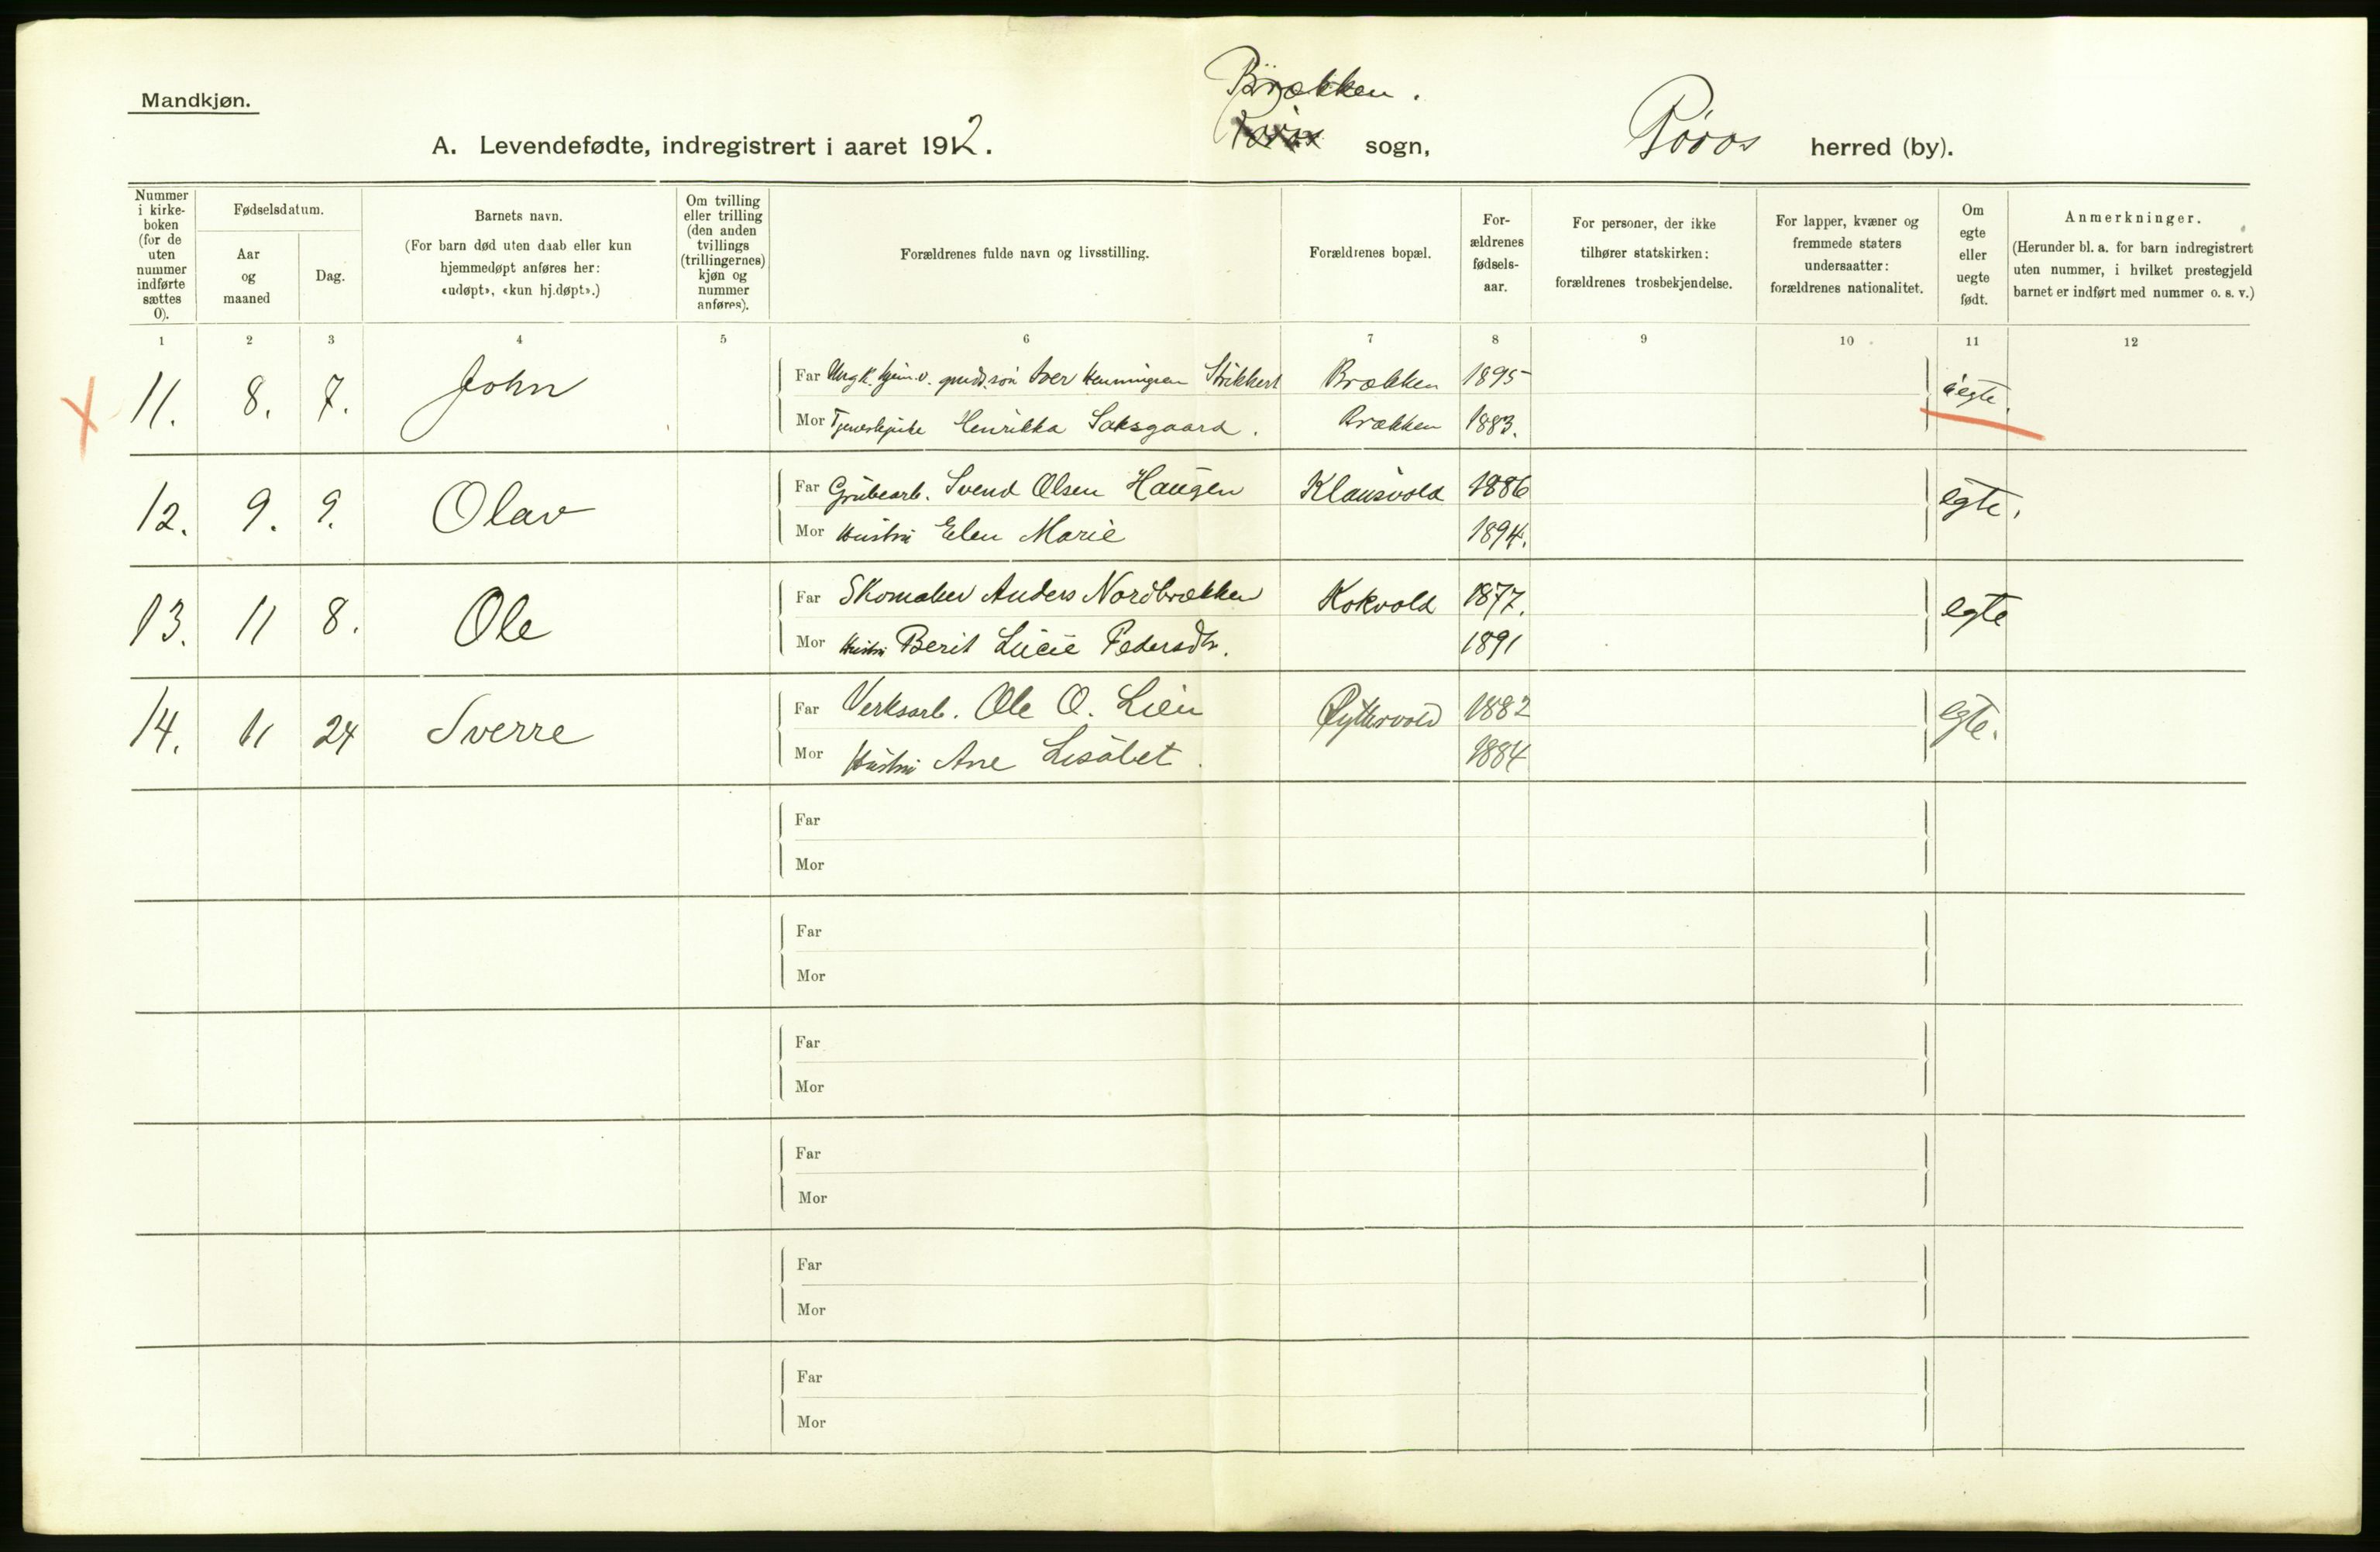 Mandkjøn.
Brækken.
A. Levendefødte, indregistrert i aaret 1912. Røros sogn, Røros herred (by).
Nummer i kirke-boken (for de uten nummer indførte sættes 0).
Fødselsdatum.
Aar og maaned
Dag.
Barnets navn.
(For barn død uten daab eller kun hjemmedøpt anføres her: «udøpt», «kun hj.døpt».)
Om tvilling eller trilling (den anden tvillings (trillingernes) kjøn og nummer anføres).
Forældrenes fulde navn og livsstilling.
Forældrenes bopæl.
For-ældrenes fødsels-aar.
For personer, der ikke tilhører statskirken: forældrenes trosbekjendelse.
For lapper, kvæner og fremmede staters undersaatter: forældrenes nationalitet.
Om egte eller uegte født.
Anmerkninger.
(Herunder bl. a. for barn indregistrert uten nummer, i hvilket prestegjeld barnet er indført med nummer o. s. v.)
1 2 3 4 5 6 7 8 9 10 11 12
11. 8. 7. John Far Ungk. Iver Henningsen Brækken 1895 uegte.
Mor Henrikka Saksgaard. Brækken 1883.
12. 9. 9. Olav Far Grubearb. Svend Olsen Haugen Klausvold 1886 egte.
Mor Hustru Elen Marie 1894.
13. 11 8. Ole Far Skomaker Anders Nordbrækken Kokvold 1877. egte
Mor Hustru Berit Lucie Pedersdtr. 1891
14. 11 24 Sverre Far Verksarb. Ole O. Lien Ryttervold 1882 egte.
Mor Hustru Ane Lisabet. 1884
Far
Mor
Far
Mor
Far
Mor
Far
Mor
Far
Mor
Far
Mor